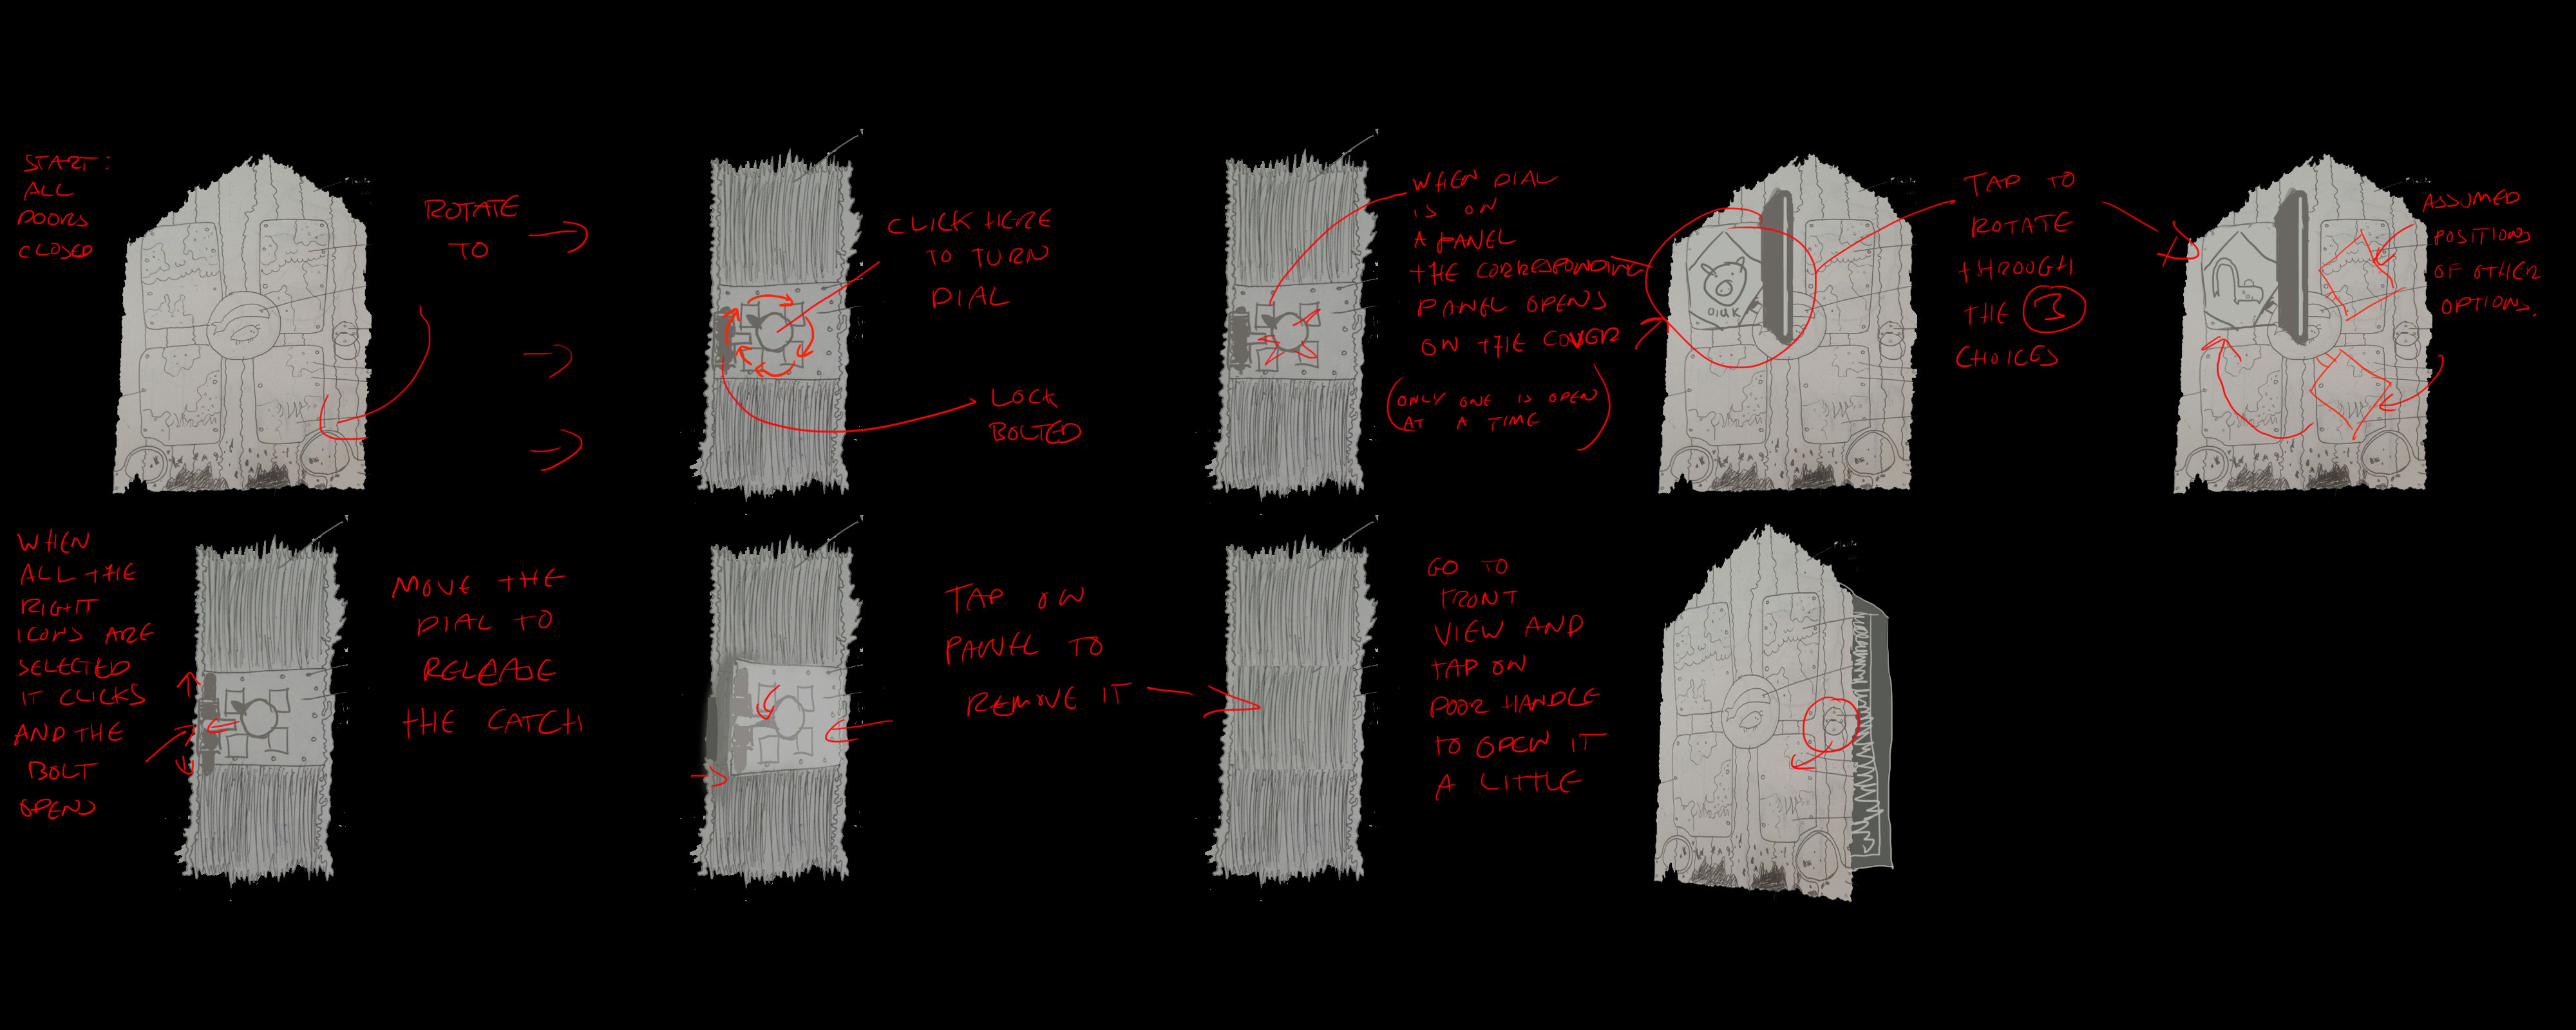 START:
ALL
DOORS
CLOSED
ROTATE
TO
CLICK HERE
TO TURN
DIAL
LOCK
BOLTED
WHEN DIAL
IS ON
A PANEL
THE CORRESPONDING
PANEL OPENS
ON THE COVER
(ONLY ONE IS OPEN
AT A TIME)
OINK
TAP TO
ROTATE
THROUGH
THE 3
CHOICES
ASSUMED
POSITIONS
OF OTHER
OPTIONS.
WHEN
ALL THE
RIGHT
ICONS ARE
SELECTED
IT CLICKS
AND THE
BOLT
OPENS
MOVE THE
DIAL TO
RELEASE
THE CATCH
TAP ON
PANEL TO
REMOVE IT
GO TO
FRONT
VIEW AND
TAP ON
DOOR HANDLE
TO OPEN IT
A LITTLE